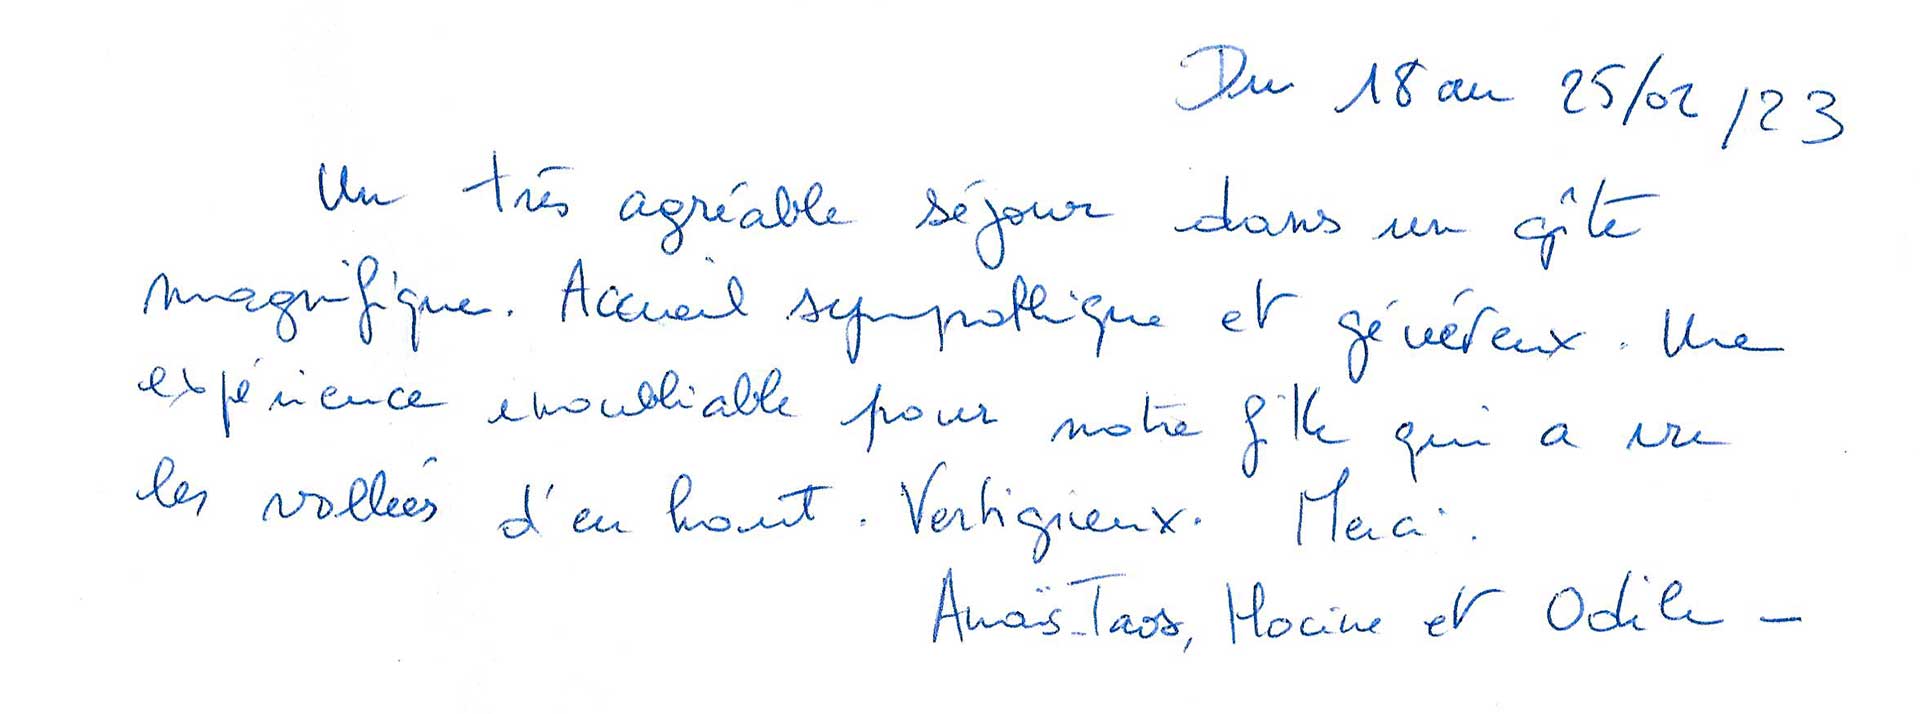 Du 18 au 25/02/23
Un très agréable séjour dans un gîte
magnifique. Accueil sympathique et généreux. Une
expérience inoubliable pour notre fille qui a vu
les vallées d'en haut. Vertigineux. Merci.
Anaïs-Taos, Hocine et Odile -